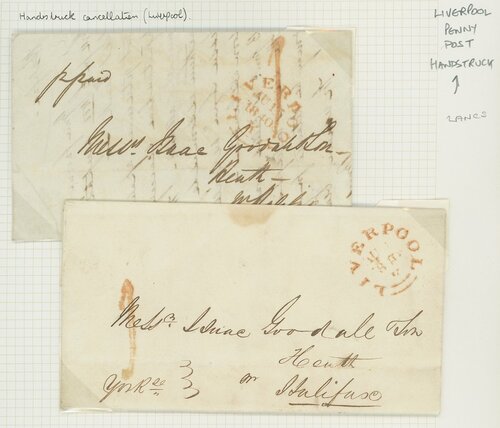 Handstruck cancellation (Liverpool).
LIVERPOOL
PENNY
POST
HANDSTRUCK
LANCS
ppaid
1
LIVERPOOL
1840
Messrs Isaac Goodall & Son
Heath
LIVERPOOL
1
Messrs Isaac Goodale Son
Heath
Yorks nr Halifax